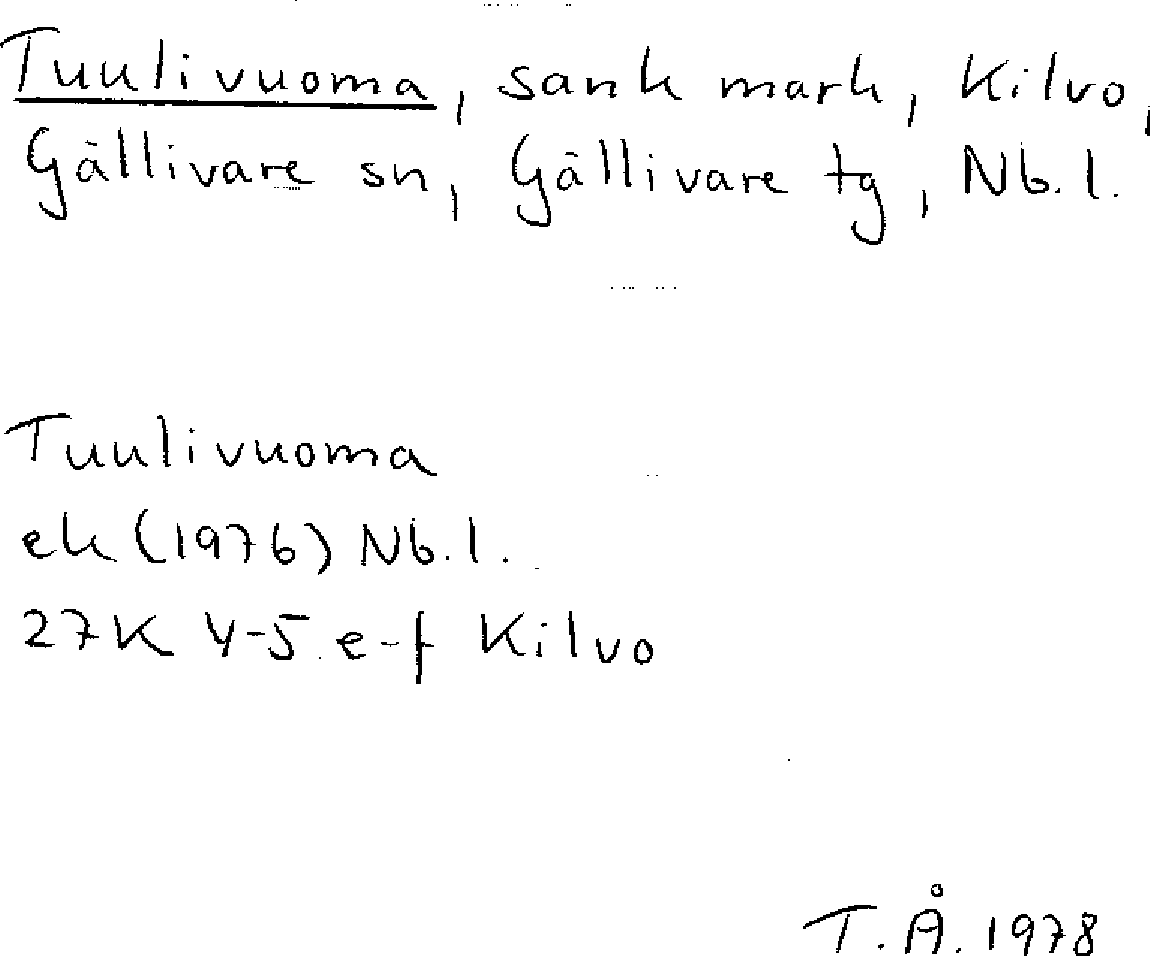 Tuulivuoma, sank mark, Kilvo,
Gällivare sn, Gällivare tg, Nb.l.
Tuulivuoma
ek (1976) Nb.l.
27K 4-5 e-f Kilvo
T.Å. 1978